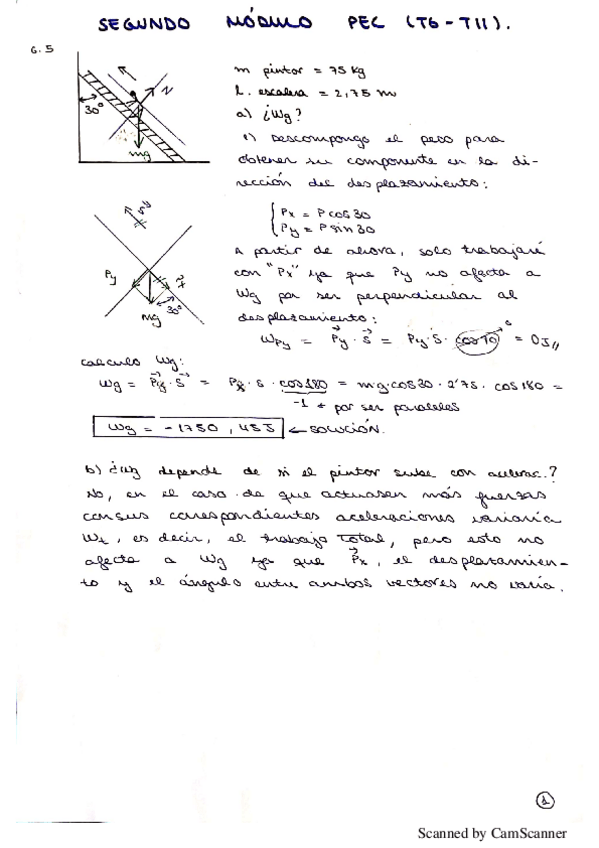 SEGUNDO MÓDULO PEC (T6-T11).
6.5
m pintor = 75 kg
L. escalera = 2,75 m
a) ¿Wg?
1) Descompongo el peso para
obtener su componente en la di-
rección del desplazamiento:
30°
N
mg
Px = P cos 30
Py = P sin 30
A partir de ahora, solo trabajaré
con "Px" ya que Py no afecta a
Wg por ser perpendicular al
desplazamiento:
S
Py
Px
30°
mg
WPy = Py · S = Py · S · cos 90 = 0J //
calculo Wg:
Wg = Px · S = Px · s · cos 180 = mg · cos 30 · 2'75 · cos 180 =
-1 → por ser paralelos
Wg = -1750,45J ← SOLUCIÓN.
b) ¿Wg depende de si el pintor sube con acelerac.?
No, en el caso de que actuasen más fuerzas
con sus correspondientes aceleraciones variaría
Wt, es decir, el trabajo total, pero esto no
afecta a Wg ya que Px, el desplazamien-
to y el ángulo entre ambos vectores no varía.
1
Scanned by CamScanner